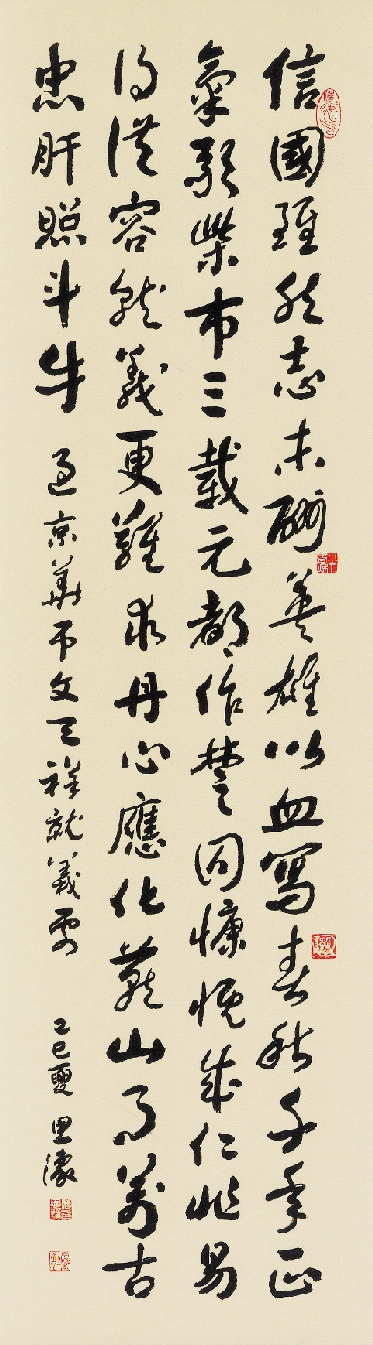 信國雖然志未酬英雄以血寫春秋千年正
氣歌柴市三載元都作楚囚慷慨成仁非易
得從容就義更難求丹心應化燕山月萬古
忠肝照斗牛 過京華吊文天祥就義處 乙巳夏